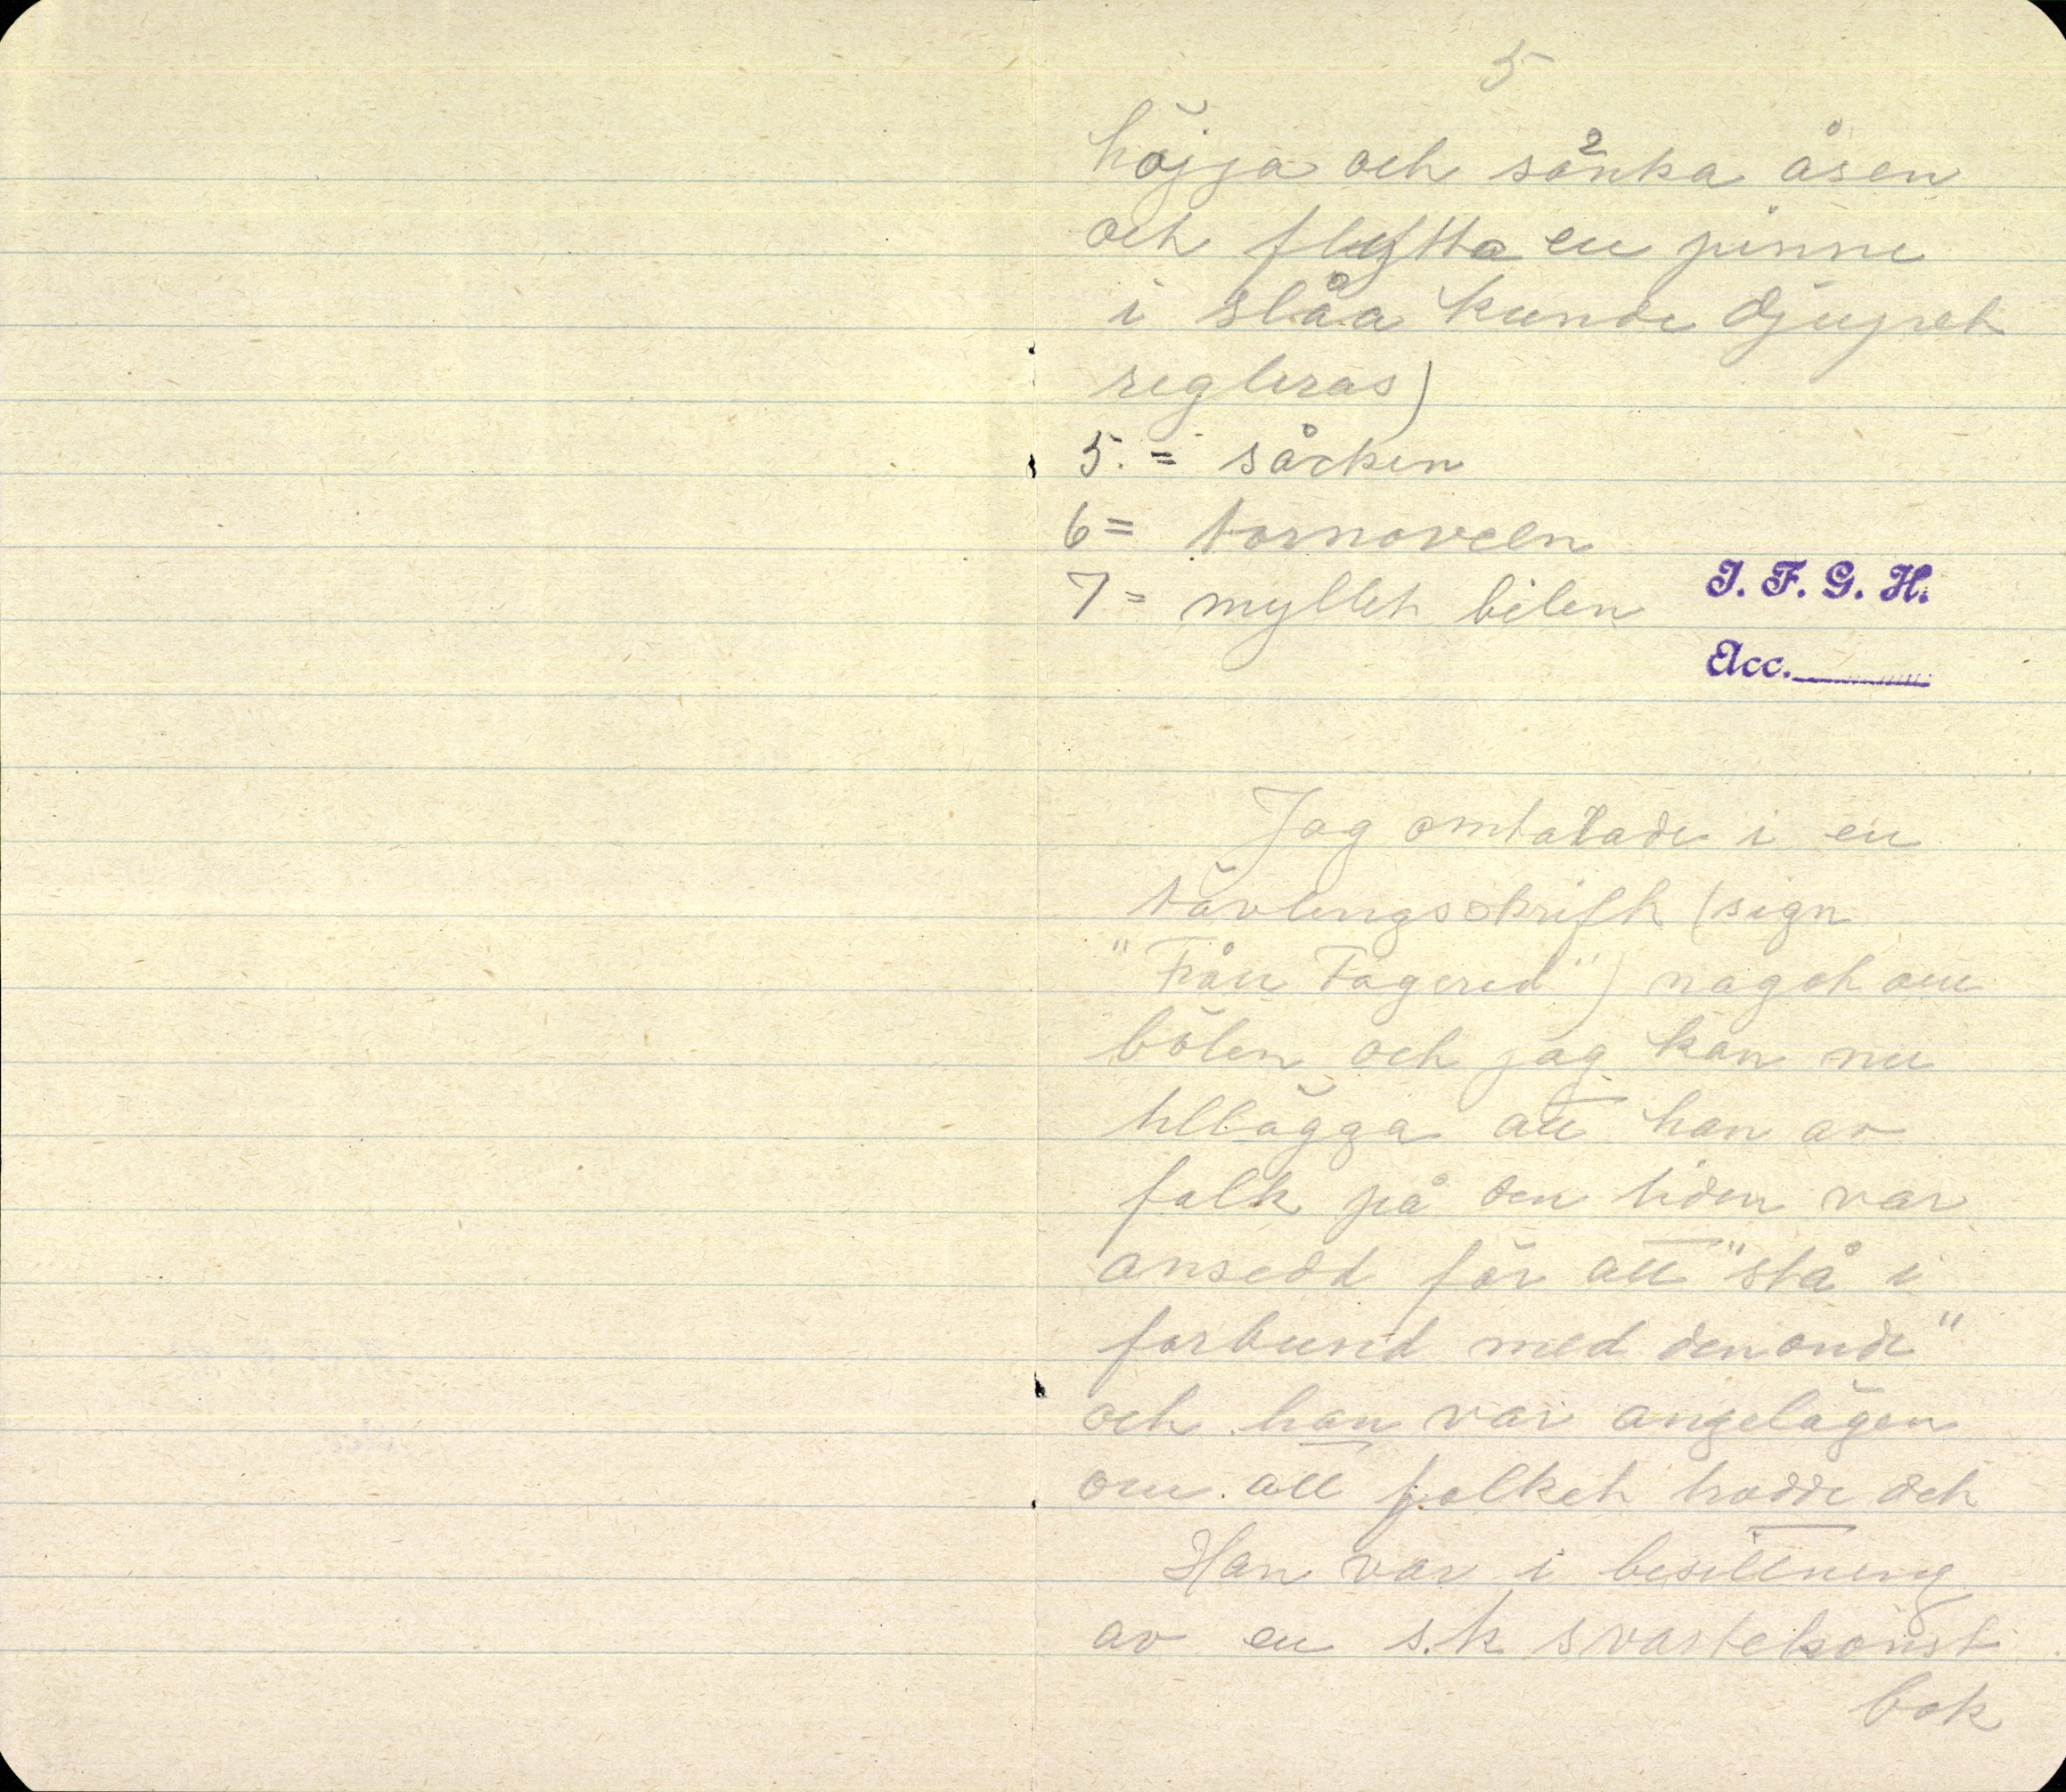 5
höjja och sänka åsen
och flytta en pinne
i slåa kunde djupet
regleras)
5. = såcken
6 = tornoveln
7 = myllet bilen
I. F. G. H.
Acc.
Jag omtalade i en
tävlingsskrift (sign
"Från Fagered") något om
bölen och jag kan nu
tillägga att han av
folk på den tiden var
ansedd för att "stå i
forbund med den onde"
och han var angelägen
om att folket trodde det
Han var i besittning
av en s.k svartekonst
bok